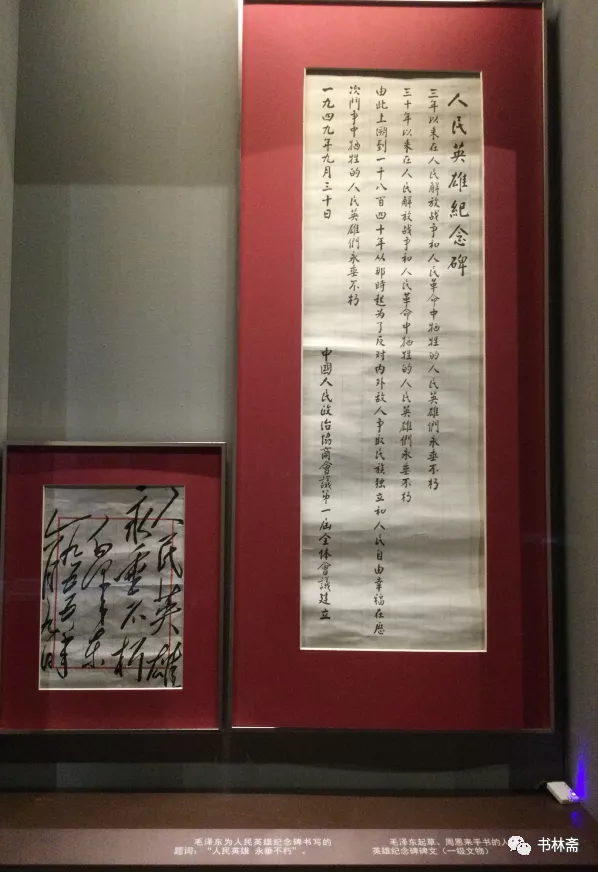 人民英雄紀念碑
三年以来在人民解放战争和人民革命中牺牲的人民英雄們永垂不朽
三十年以来在人民解放战争和人民革命中牺牲的人民英雄們永垂不朽
由此上溯到一千八百四十年从那時起为了反对内外敌人争取民族独立和人民自由幸福在历
次鬥争中牺牲的人民英雄們永垂不朽
一九四九年九月三十日
中國人民政治協商會議第一届全体會議建立
人民英雄
永垂不朽
毛泽东
一九五五年
六月九日
毛泽东为人民英雄纪念碑书写的
题词：“人民英雄 永垂不朽”。
毛泽东起草、周恩来手书的人
英雄纪念碑碑文（一级文物）
书林斋